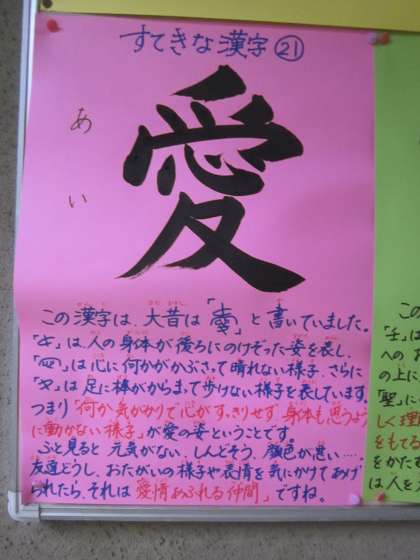 すてきな漢字㉑
愛
あい
この漢字は、大昔は「」と書いていました。
「」は人の身体が後ろにのけぞった姿を表し、
「」は心に何かがかぶさって晴れない様子、さらに
「夂」は足に棒がからまって歩けない様子を表しています。
つまり「何か気がかりで心がすっきりせず、身体も思うよう
に動かない様子」が愛の姿ということです。
ふと見ると元気がない、しんどそう、顔色が悪い…。
友達どうし、おたがいの様子や表情を気にかけてあげ
られたら、それは「愛情あふれる仲間」ですね。
この
「壬」は
への
の上に
「聖」に
しく理
をもてる
をかたま
は人を